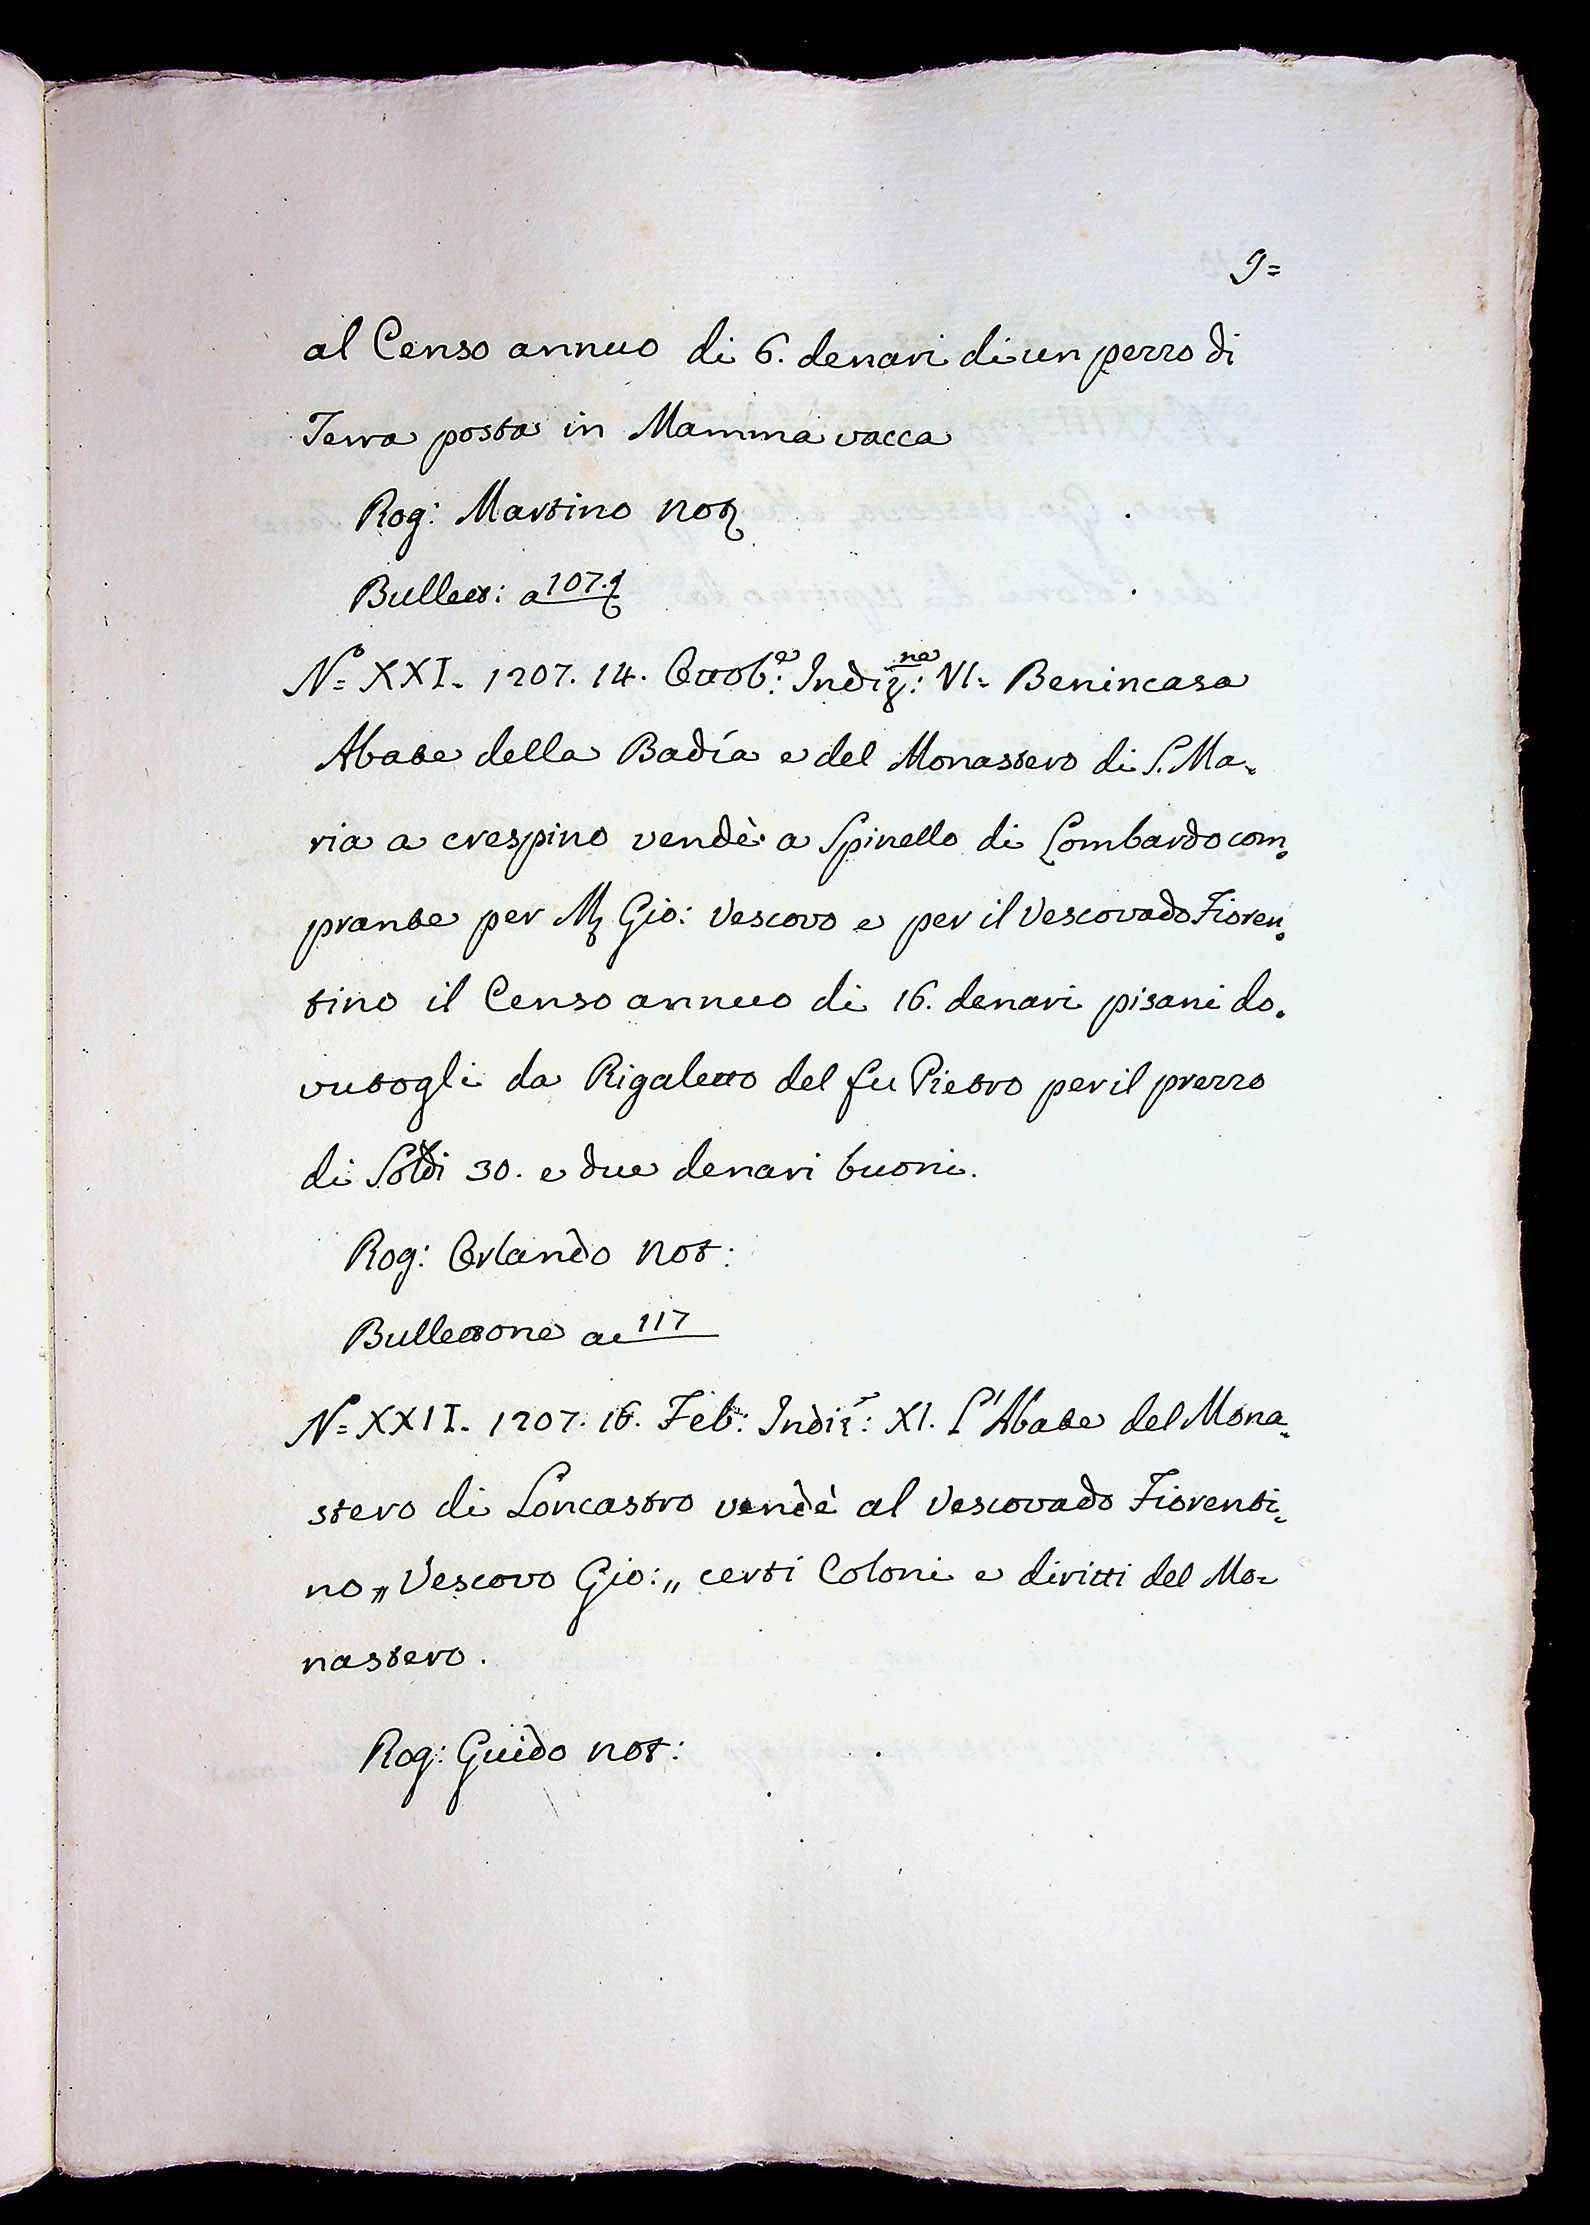 9=
al Censo annuo di 6. denari di un pezzo di
Terra posta in Mamma vacca
Rog: Martino Not
Bullett: a 107.
Nº= XXI. 1207. 14. Ottob.e: Indiz.ne: VI= Benincasa
Abate della Badía e del Monastero di S. Ma=
ria a crespino vendè a Spinello di Lombardo com=
prante per M Gio: Vescovo e per il Vescovado Fioren=
tino il Censo annuo di 16. denari pisani do=
vutogli da Rigaletto del fu Pietro per il prezzo
di Soldi 30. e due denari buoni.
Rog: Orlando Not:
Bullettone a 117
Nº= XXII. 1207. 16. Feb: Indiz: XI. L'Abate del Mona=
stero di Loncastro vendè al Vescovado Fiorenti=
no „ Vescovo Gio: „ certi Coloni e diritti del Mo=
nastero.
Rog: Guido not: